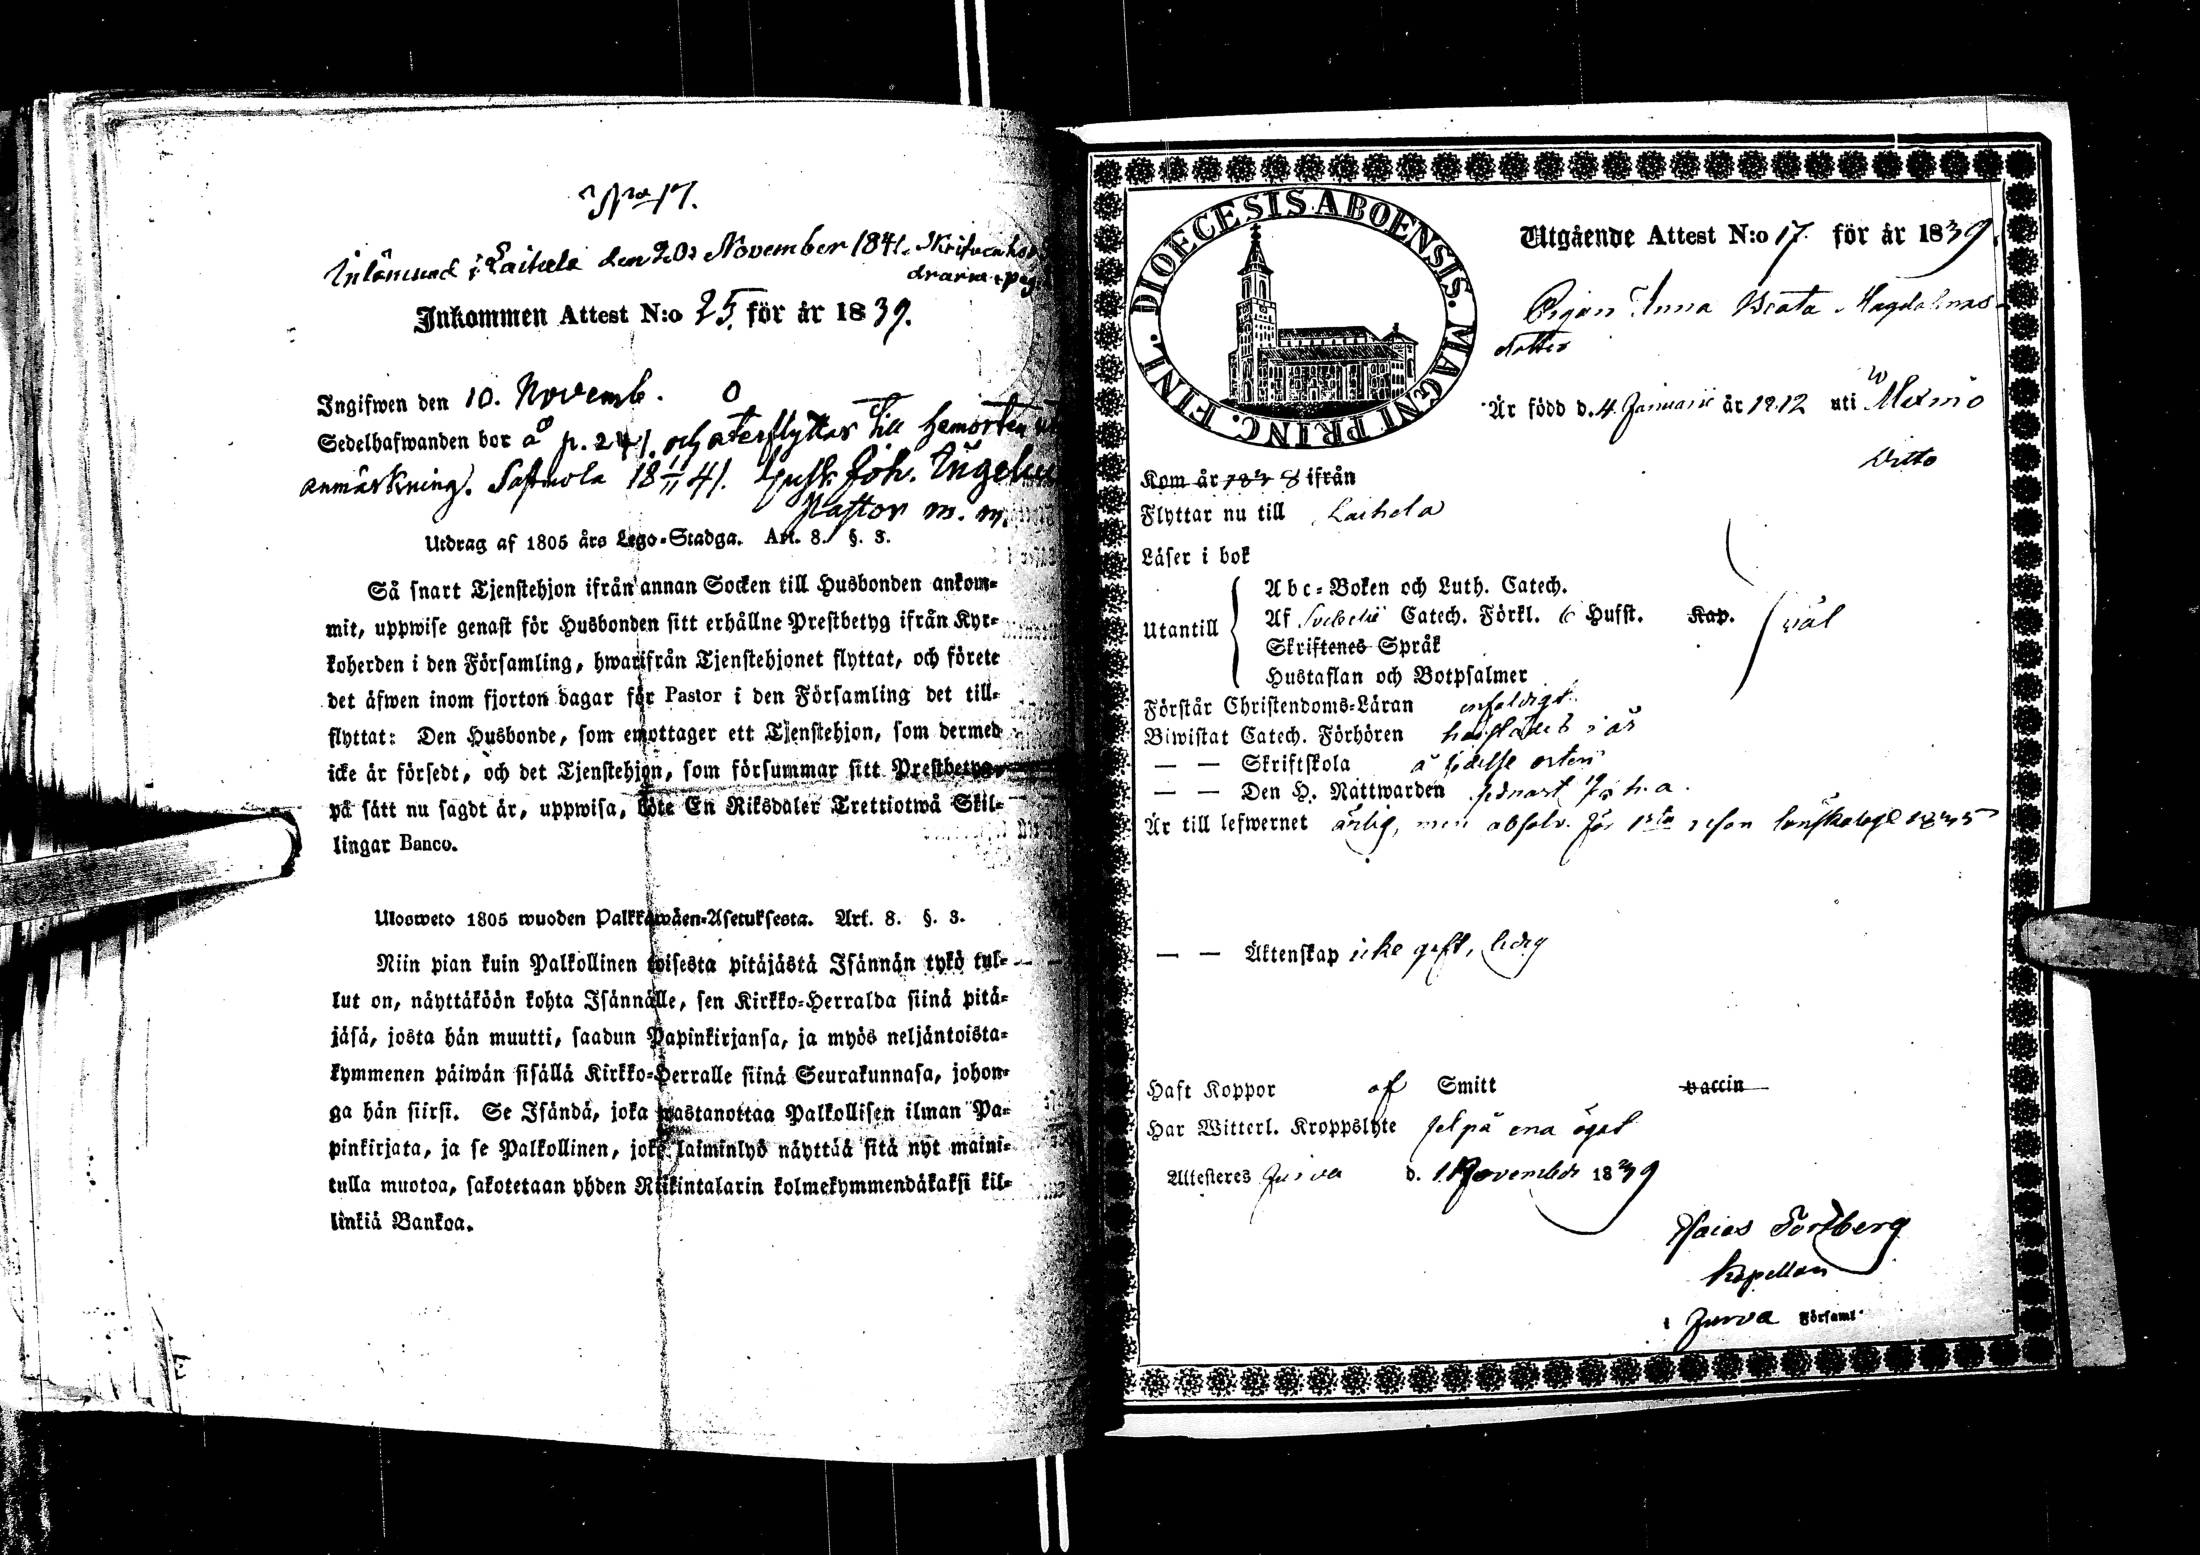 No 17.
Inlämnad i Laihela den 20 November 1841.
Inkommen Attest N:o 25. för år 1839.
Ingifwen den 10. Novemb.
Sedelhafwanden bor å p. 241. och återflyttar till hemorten
anmärkning. Joh.
Pastor m. m.
Utdrag af 1805 års Lego-Stadga. Art. 8. §. 3.
Så snart Tjenstehjon ifrån annan Socken till Husbonden ankom-
mit, uppwise genast för Husbonden sitt erhållne Prestbetyg ifrån Kyr-
koherden i den Församling, hwarifrån Tjenstehjonet flyttat, och förete
det äfwen inom fjorton dagar för Pastor i den Församling det till-
flyttat: Den Husbonde, som emottager ett Tjenstehjon, som dermed
icke är försedt, och det Tjenstehjon, som försummar sitt Prestbetyg,
på sätt nu sagdt är, uppwisa, böte En Riksdaler Trettiotwå Skil-
lingar Banco.
Ulosweto 1805 wuoden Palkkawäen-Asetuksesta. Art. 8. §. 3.
Niin pian kuin Palkollinen toisesta pitäjästä Isännän tykö tul-
lut on, näyttäköön kohta Isännälle, sen Kirkko-Herralda siinä pitä-
jäsä, josta hän muutti, saadun Papinkirjansa, ja myös neljäntoista-
kymmenen päiwän sisällä Kirkko-Herralle siinä Seurakunnasa, johon-
ga hän siirsi. Se Isändä, joka wastanottaa Palkollisen ilman Pa-
pinkirjata, ja se Palkollinen, joka laiminlyö näyttää sitä nyt maini-
tulla muotoa, sakotetaan yhden Riikintalarin kolmekymmendäkaksi kil-
linkiä Bankoa.
DIOECESIS ABOENSIS. MAGNI PRINC. FINL.
Utgående Attest N:o 17. för år 1839.
Pigan Anna Beata Magdalenas-
dotter
Är född d. 4 Januarii år 1812 uti
Ditto
Kom år 1838 ifrån
Flyttar nu till Laihela
Läser i bok
Utantill
Abc-Boken och Luth. Catech.
Af Svebelii Catech. Förkl. 6 Hufst. Kap.
Skriftenes Språk
Hustaflan och Botpsalmer
väl
Förstår Christendoms-Läran enfaldigt
Biwistat Catech. Förhören i år
— — Skriftskola å födelse orten
— — Den H. Nattwarden sednast h. a.
Är till lefwernet ärlig, men absolv. för 1sta resan lönskaläge 1835
— — Äktenskap icke gift, ledig
Haft Koppor af Smitt vaccin
Har Witterl. Kroppslyte fel på ena ögat
Attesteres Jurva d. 1 November 1839
Esaias Fortberg
Kapellan
i Jurva Församl.